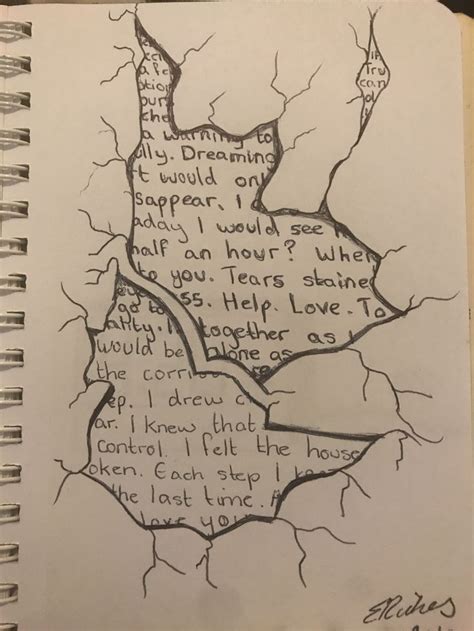 a warning to
ully. Dreaming
t would onl
sappear. I
aday I would see
half an hour? When
to you. Tears staine
55. Help. Love. To
go to
ality. I together as I
would be alone as
the corri
ep. I drew c
ar. I knew that
control. I felt the house
oken. Each step I
the last time.
love you
In
Tru
can
ERiches